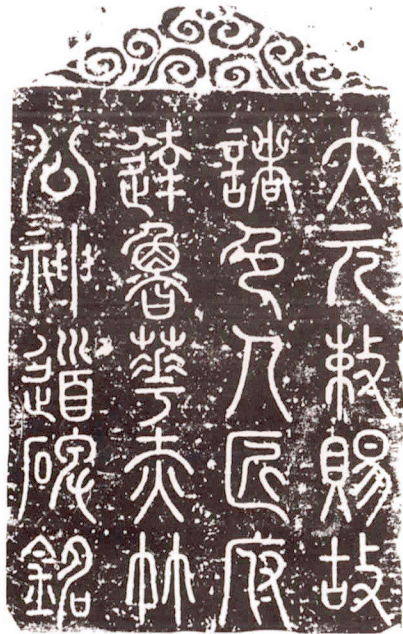 大元敕賜故
諸色人匠府
達魯華赤竹
公神道碑銘